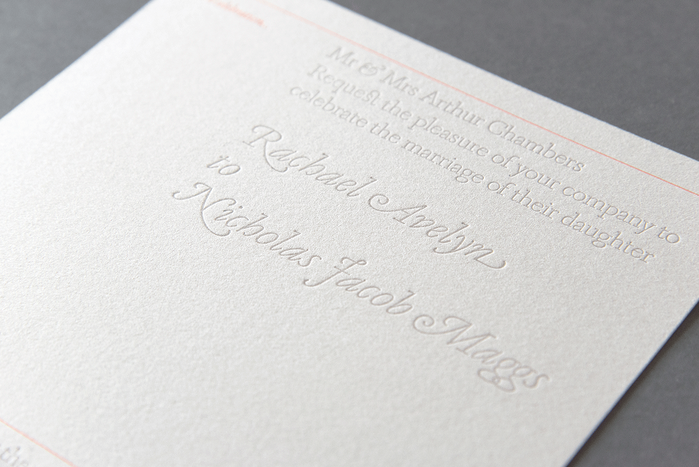 Mr & Mrs Arthur Chambers
Request the pleasure of your company to
celebrate the marriage of their daughter
Rachael Avelyn
to
Nicholas Jacob Maggs